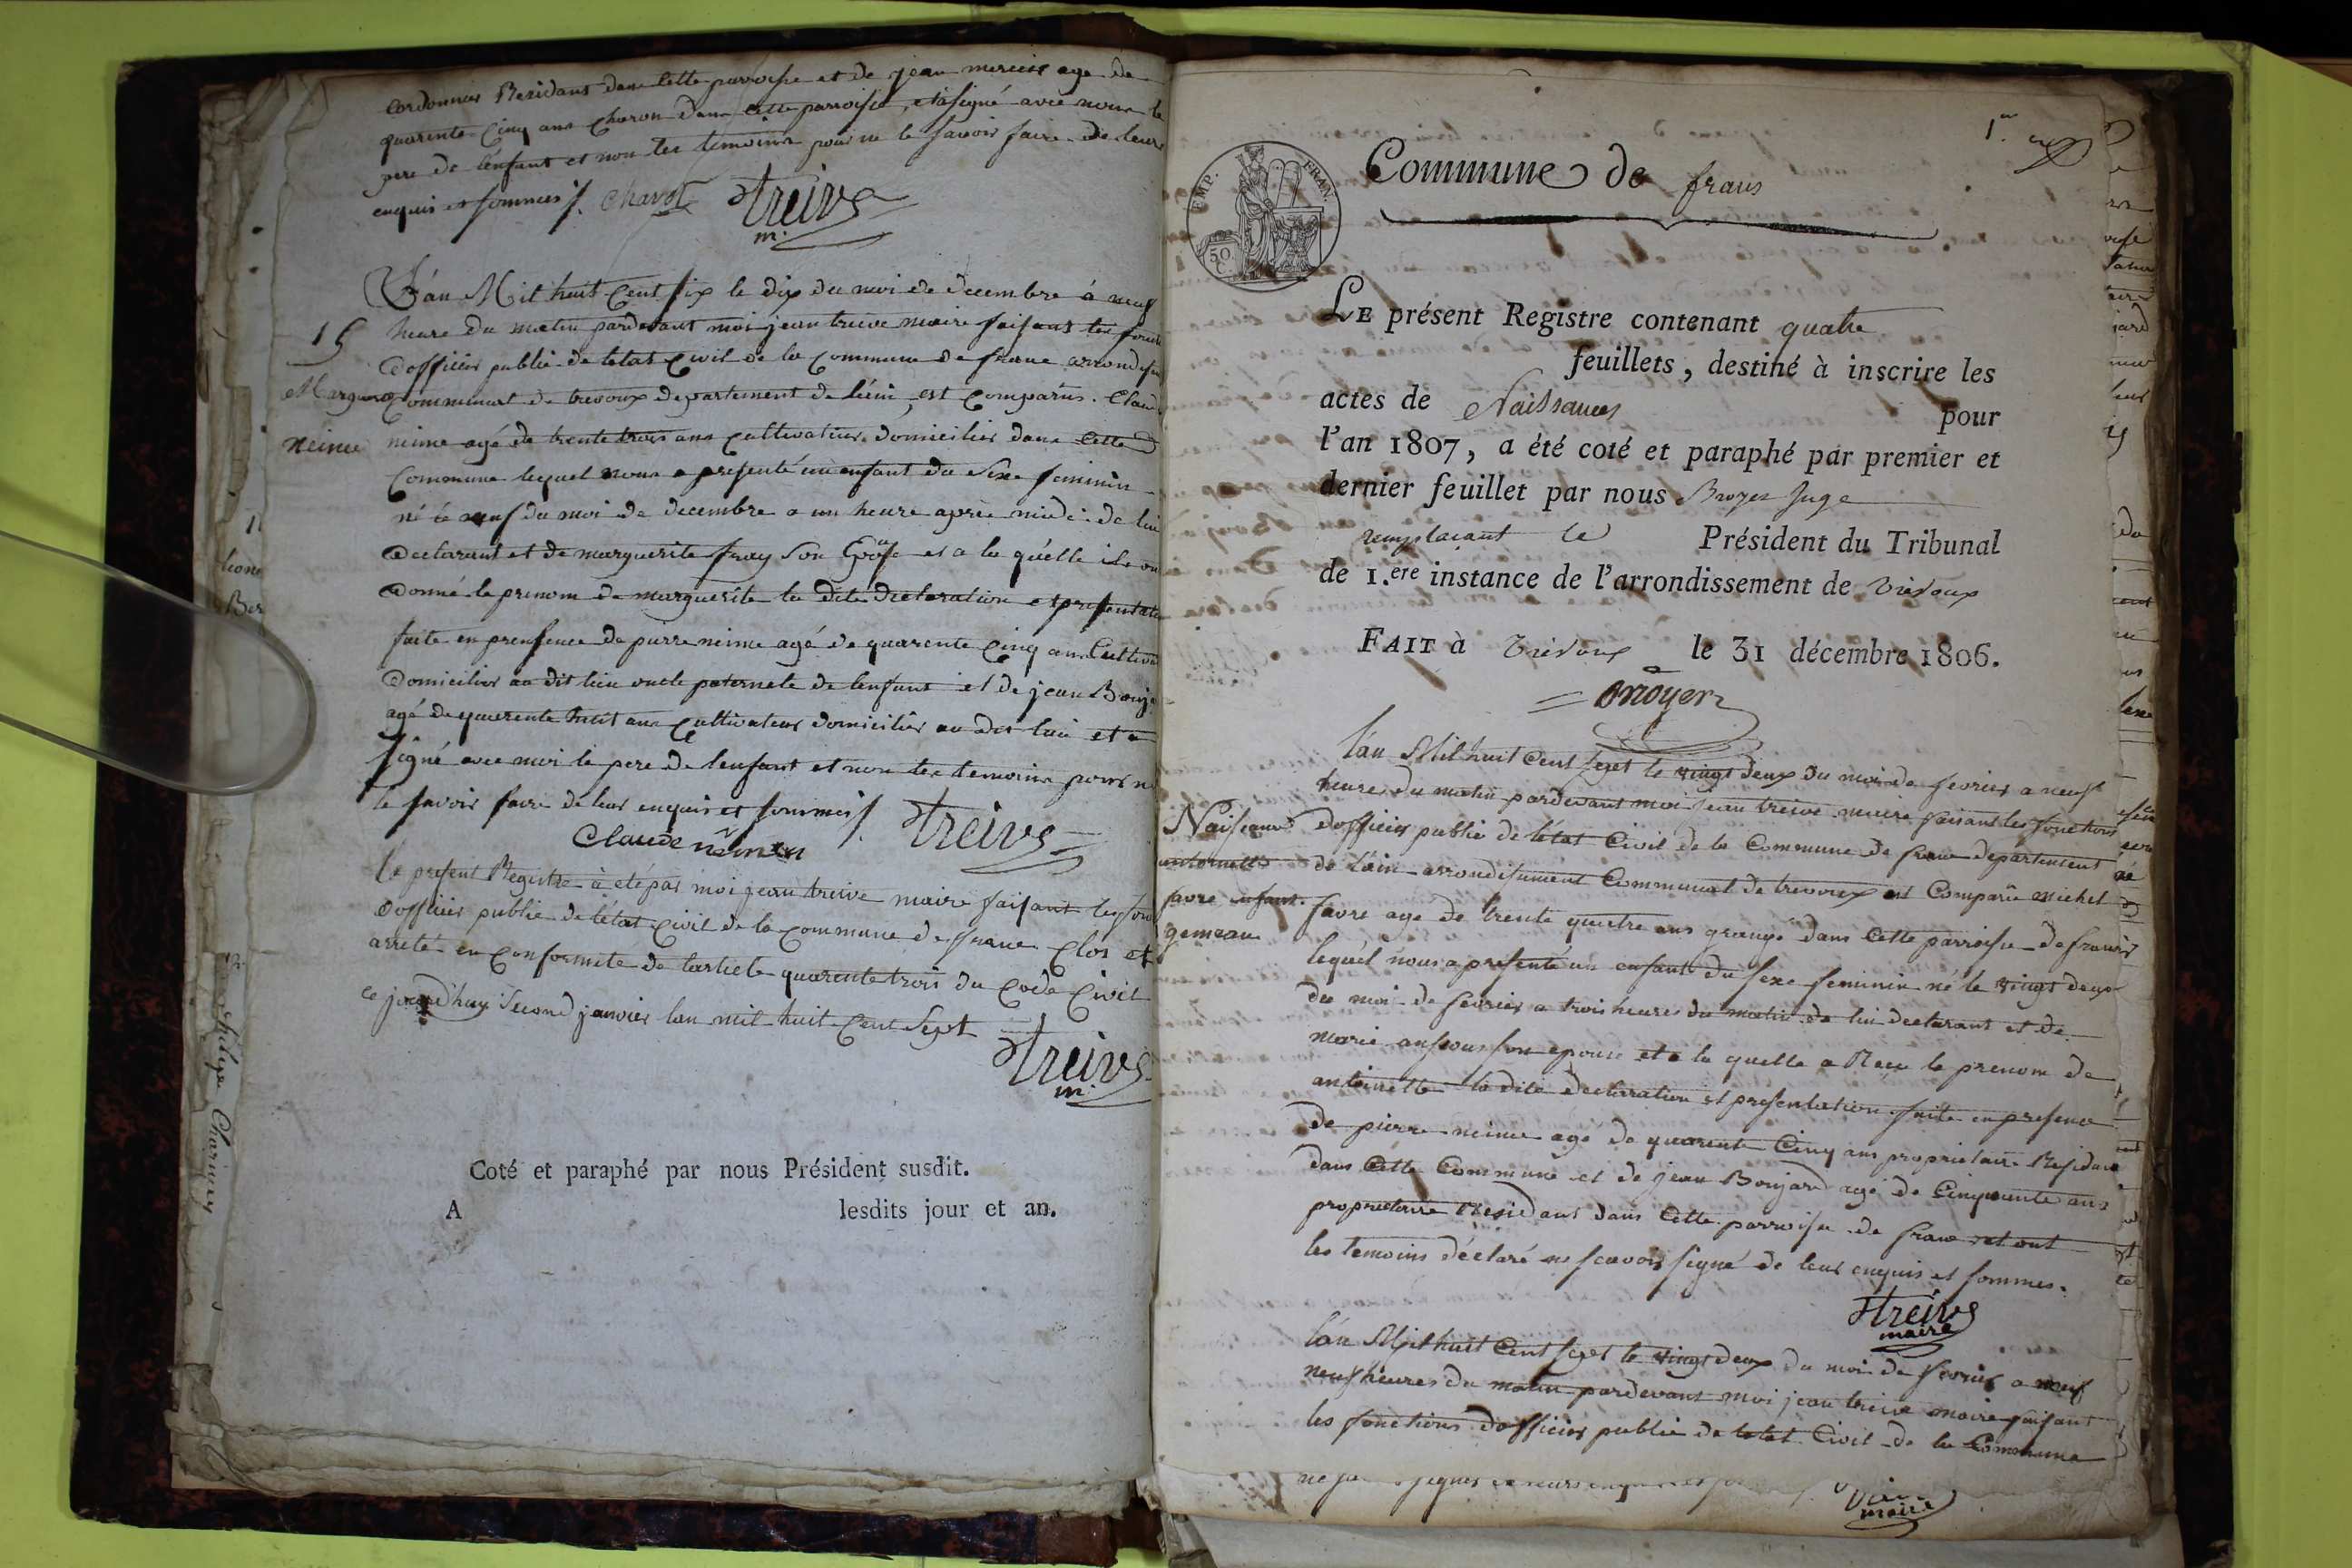 cordonnier Residant dans cette parroisse et de jean mercier age de
quarente Cinq ans charon dans cette parroisse, et a signé avec nous le
pere de l'enfant et non les temoins pour ne le savoir faire de leurs
enquis et sommés /. Chavot treive
m.
15
Marguerite
neime
L'an Mil huit Cent six le dix du moi de decembre à neuf
heure du matin pardevant moi jean treive maire faisant les
d'officier public de letat Civil de la Commune de frans
Communal de trevoux departement de l'ain, est Comparus.
neime agé de trente trois ans Cultivateur domicilier dans cette
Commune lequel nous a presenté un enfant du Sexe feminin
né le neuf du moi de decembre a un heure après midi de lui
declarant et de marguerite fray son Epouse et a la qu'elle ils
donné le prenom de marguerite la dite declaration et presentation
faite en presence de pierre neime agé de quarente Cinq ans
domicilier au dit lieu oncle paternele de lenfant et de jean
agé de quarente huit ans Cultivateur domicilier au dit lieu et a
signé avec moi le pere de lenfant et non les temoins pour ne
le savoir faire de leur enquis et sommés /. treive
Claude neimen
le present Registre à eté par moi jean treive maire faisant les
d'officier public de l'état Civil de la Commune de frans Clos et
arrêté en Conformité de l'article quarente trois du Code Civil
ce jourd'huy Second janvier lan mil huit Cent Sept
treive
m.
Coté et paraphé par nous Président susdit.
A lesdits jour et an.
1er
EMP. FRAN.
50 C.
Commune de frans
LE présent Registre contenant quatre
feuillets, destiné à inscrire les
actes de Naissances pour
l'an 1807, a été coté et paraphé par premier et
dernier feuillet par nous Juge
remplaçant le Président du Tribunal
de 1.ere instance de l'arrondissement de Trévoux
FAIT à Trévoux le 31 décembre 1806.
Naissance
antoinette
favre enfant
gemeau
l'an Mil huit Cent Sept le vingt deux du moi de fevrier a neuf
heures du matin pardevant moi Jean treive maire faisant les fonctions
d'officier public de l'état Civil de la Commune de frans departement
de l'ain arrondisement Communal de trevoux est Comparu michel
favre age de trente quatre ans granger dans Cette parroisse de frans
lequel nous a presenté un enfant du sexe feminin né le vingt deux
du moi de fevrier a trois heures du matin de lui declarant et de
marie son epouse et a la quelle a Reçu le prenom de
antoinette la dite declaration et presentation faite en presence
de pierre neime agé de quarente Cinq ans proprietaire Residant
dans Cette Commune et de jean Bonjard agé de Cinquente ans
proprietaire Residant dans Cette parroisse de frans et ont
les temoins déclaré ne scavoir signé de leur enquis et sommes.
treive
maire
l'an Mil huit Cent Sept le vingt deux du moi de fevrier a neuf
neuf heures du matin pardevant moi jean treive maire faisant
les fonctions d'officier public de letat Civil de la Commune
maire